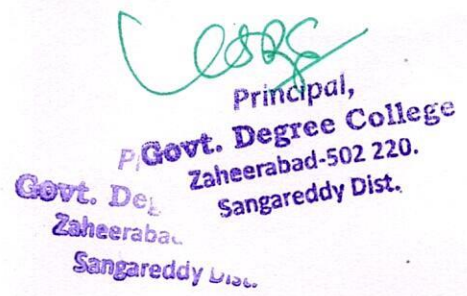 Principal,
Govt. Degree College
Zaheerabad-502 220.
Sangareddy Dist.
P
Govt. De
Zaheeraba
Sangareddy Dist.